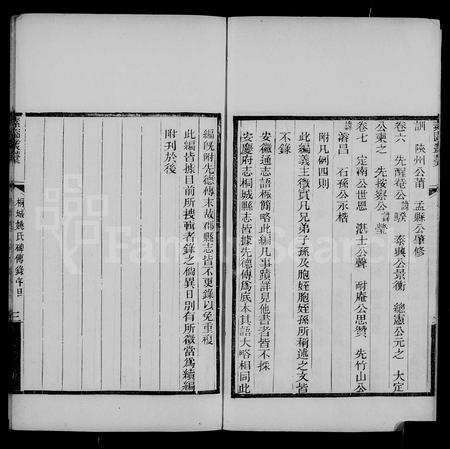 訓　陝州公莆　孟縣公肇修
卷六　先醒菴公諱騤　泰興公景衡　總憲公元之　大定
公柬之　先按察公諱瑩
卷七　定南公世恩　湛士公聲　耐庵公思贊　先竹山公
諱濬昌　石孫公永楷
附凡例四則
此編義主徵實凡兄弟子孫及胞姪胞姪孫所稱述之文皆
不錄
安徽通志語極簡略此編凡事蹟詳見他書者皆不採
安慶府志桐城縣志皆據先德傳爲底本其語大略相同此
編既附先德傳末故郡縣志皆不更錄以免重複
此編皆據目前所搜輯者錄之倘異日別有所徵當爲續編
附刊於後
桐城姚氏碑傳錄序目
二